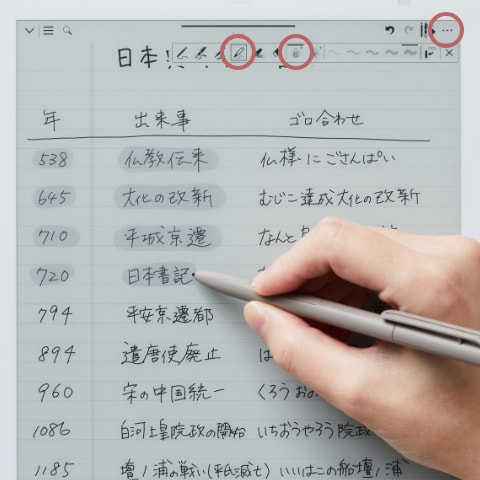 日本
年 出来事 ゴロ合わせ
538 仏教伝来 仏様にごさんぱい
645 大化の改新 むじこ達成大化の改新
710 平城京遷 なんと
720 日本書記
794 平安京遷都
894 遣唐使廃止 は
960 宋の中国統一 くろう
1086 白河上皇院政の開始 いちおうやろう院政
1185 壇ノ浦の戦い(平氏滅亡) いいはこの船壇ノ浦